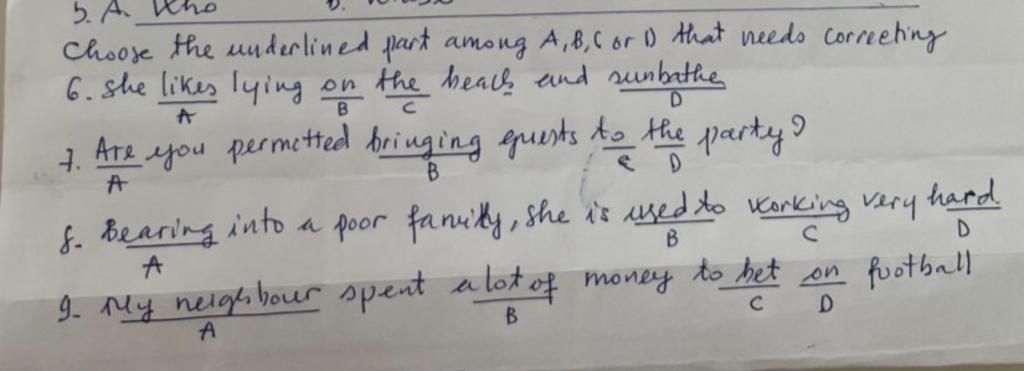 5. A. Who
Choose the underlined part among A, B, C or D that needs correcting
6. She likes lying on the beach and sunbathe
A B C D
7. Are you permitted bringing guests to the party?
A B C D
8. Bearing into a poor family, she is used to working very hard
A B C D
9. My neighbour spent a lot of money to bet on football
A B C D